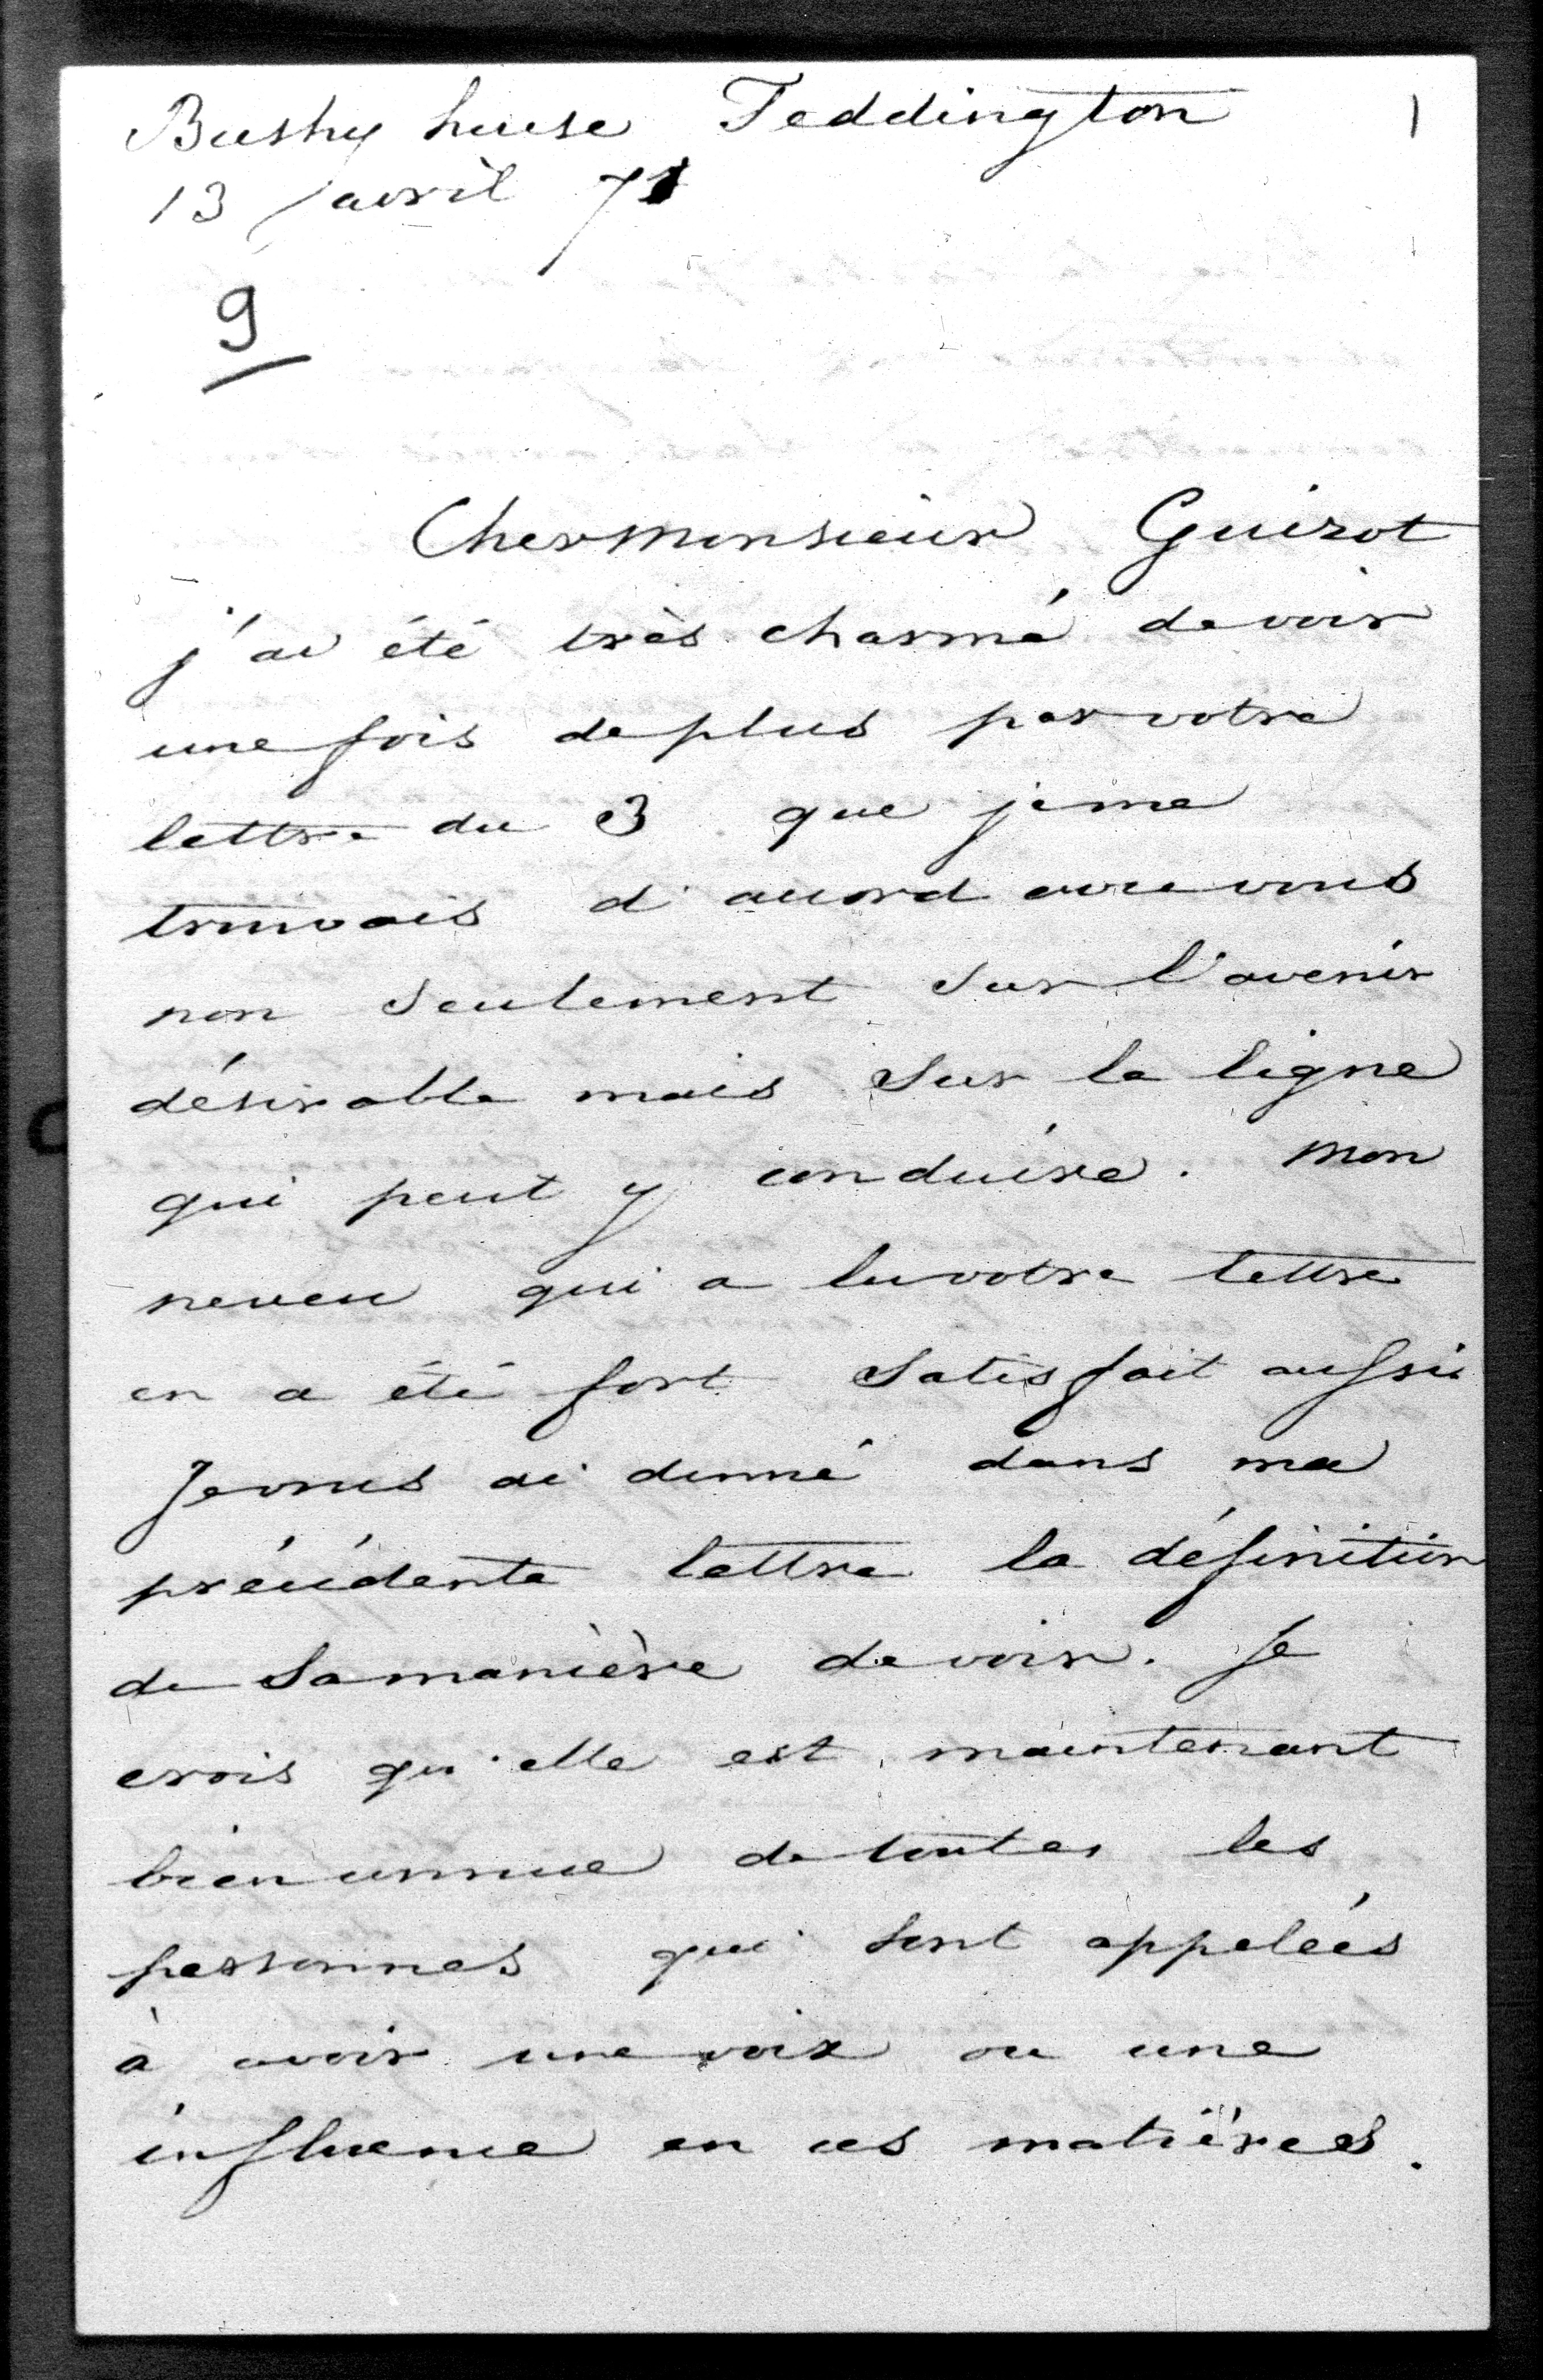 Bushy house Teddington 1
13 avril 71
9
Cher monsieur Guizot
j'ai été très charmé de voir
une fois de plus par votre
lettre du 3 que je me
trouvais d'accord avec vous
non seulement sur l'avenir
désirable mais sur la ligne
qui peut y conduire. Mon
neveu qui a lu votre lettre
en a été fort satisfait aussi
Je vous ai donné dans ma
précédente lettre la définition
de sa manière de voir. Je
crois qu'elle est maintenant
bien connue de toutes les
personnes qui sont appelées
à avoir une voix ou une
influence en ces matières.